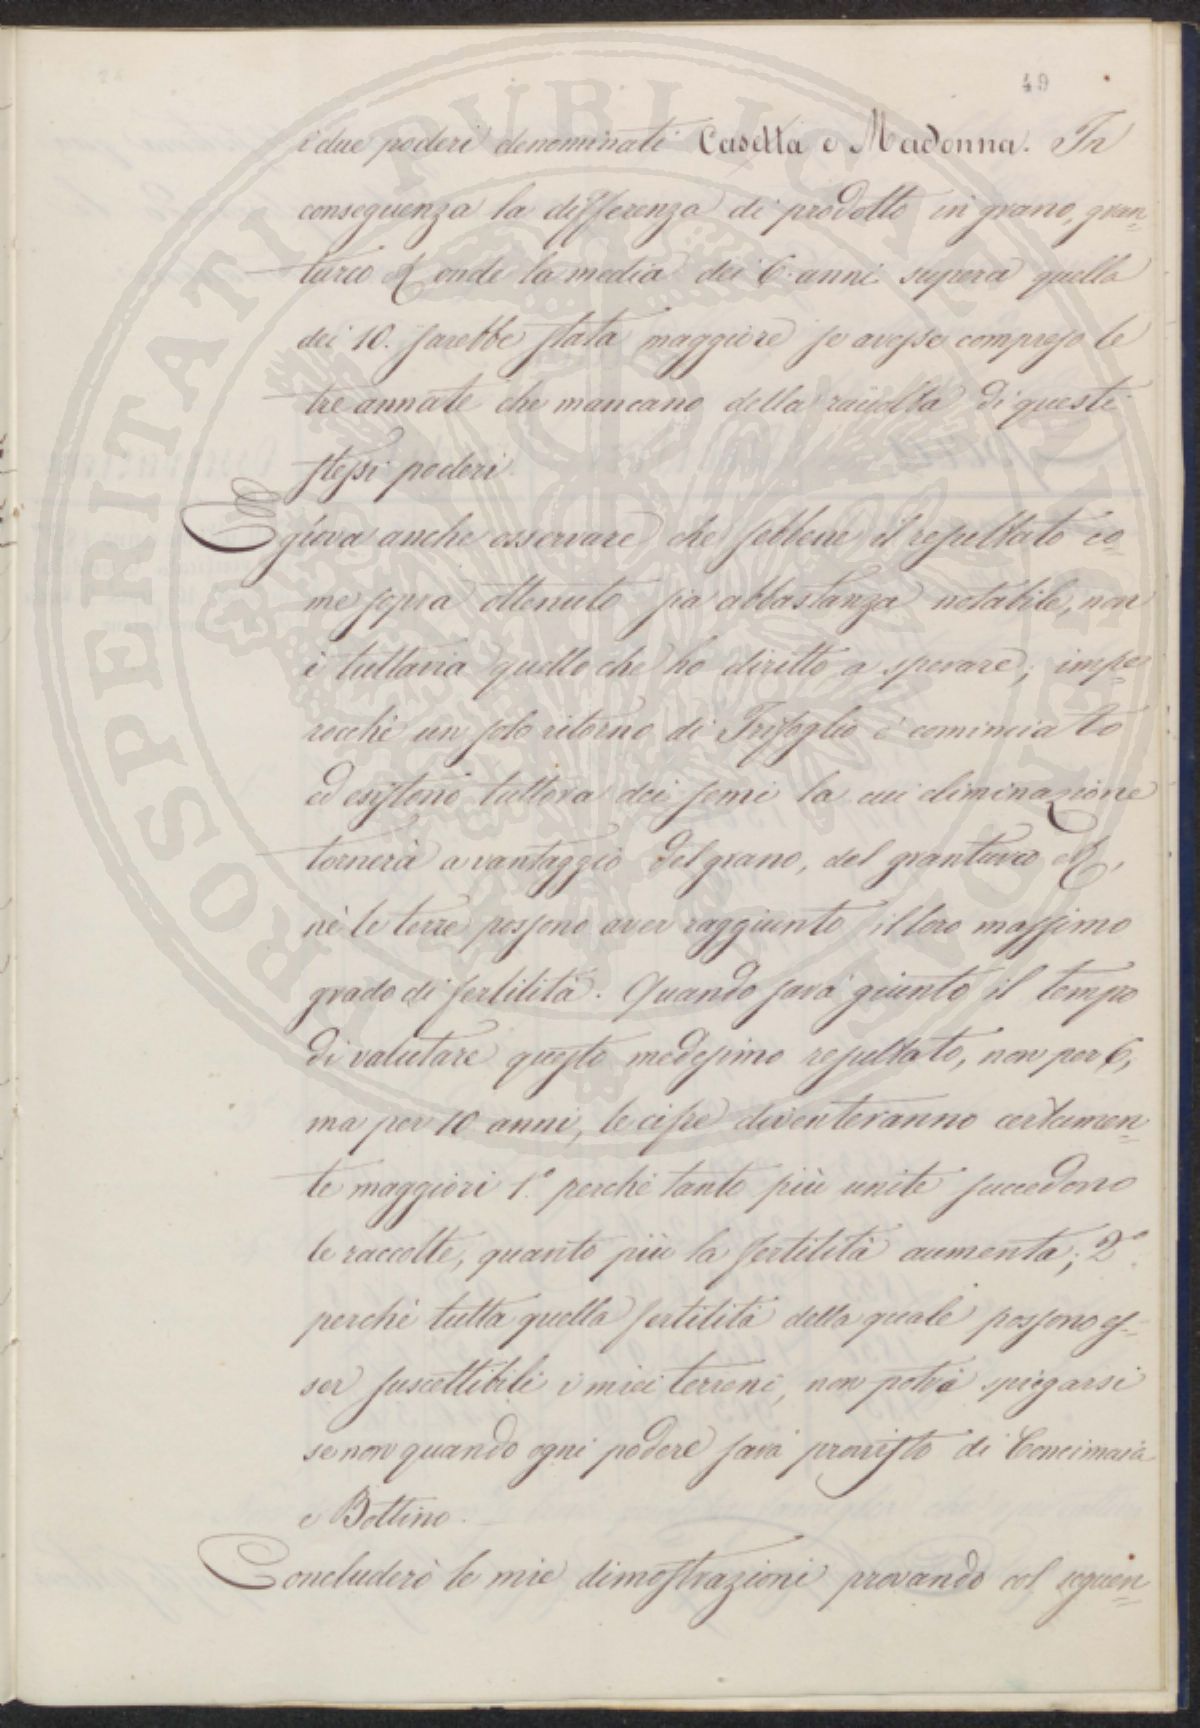 49
i due poderi denominati Casetta e Madonna. In
conseguenza la differenza di prodotto in grano, gran=
turco &, onde la media dei 6. anni supera quella
dei 10. sarebbe stata maggiore se avesse compreso le
tre annate che mancano della raccolta di questi
stessi poderi.
E giova anche osservare che sebbene il resultato co=
me sopra ottenuto sia abbastanza notabile, non
è tuttavia quello che ho diritto a sperare; impe=
rocchè un solo ritorno di Trifoglio è cominciato
ed esistono tuttora dei semi la cui eliminazione
tornerà a vantaggio del grano, del granturco &,
nè le terre possono aver raggiunto il loro massimo
grado di fertilità. Quando sarà giunto il tempo
di valutare questo medesimo resultato, non per 6,
ma per 10 anni, le cifre diventeranno certamen=
te maggiori 1.° perchè tanto più unite succedono
le raccolte, quanto più la fertilità aumenta; 2.°
perchè tutta quella fertilità della quale possono es=
ser suscettibili i miei terreni, non potrà spiegarsi
se non quando ogni podere sarà provvisto di Concimaia
e Bottino.
Concluderò le mie dimostrazioni provando col seguen=
PROSPERITATI PUBLICAE NOVAE